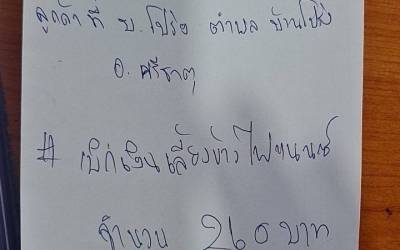 ลูกค้าที่ บ.โปร่ง ตำบล บ้านโปร่ง
อ. ศรีธาตุ
# เบิกเงินเลี้ยงข้าวไฟแนนซ์
จำนวน 260 บาท